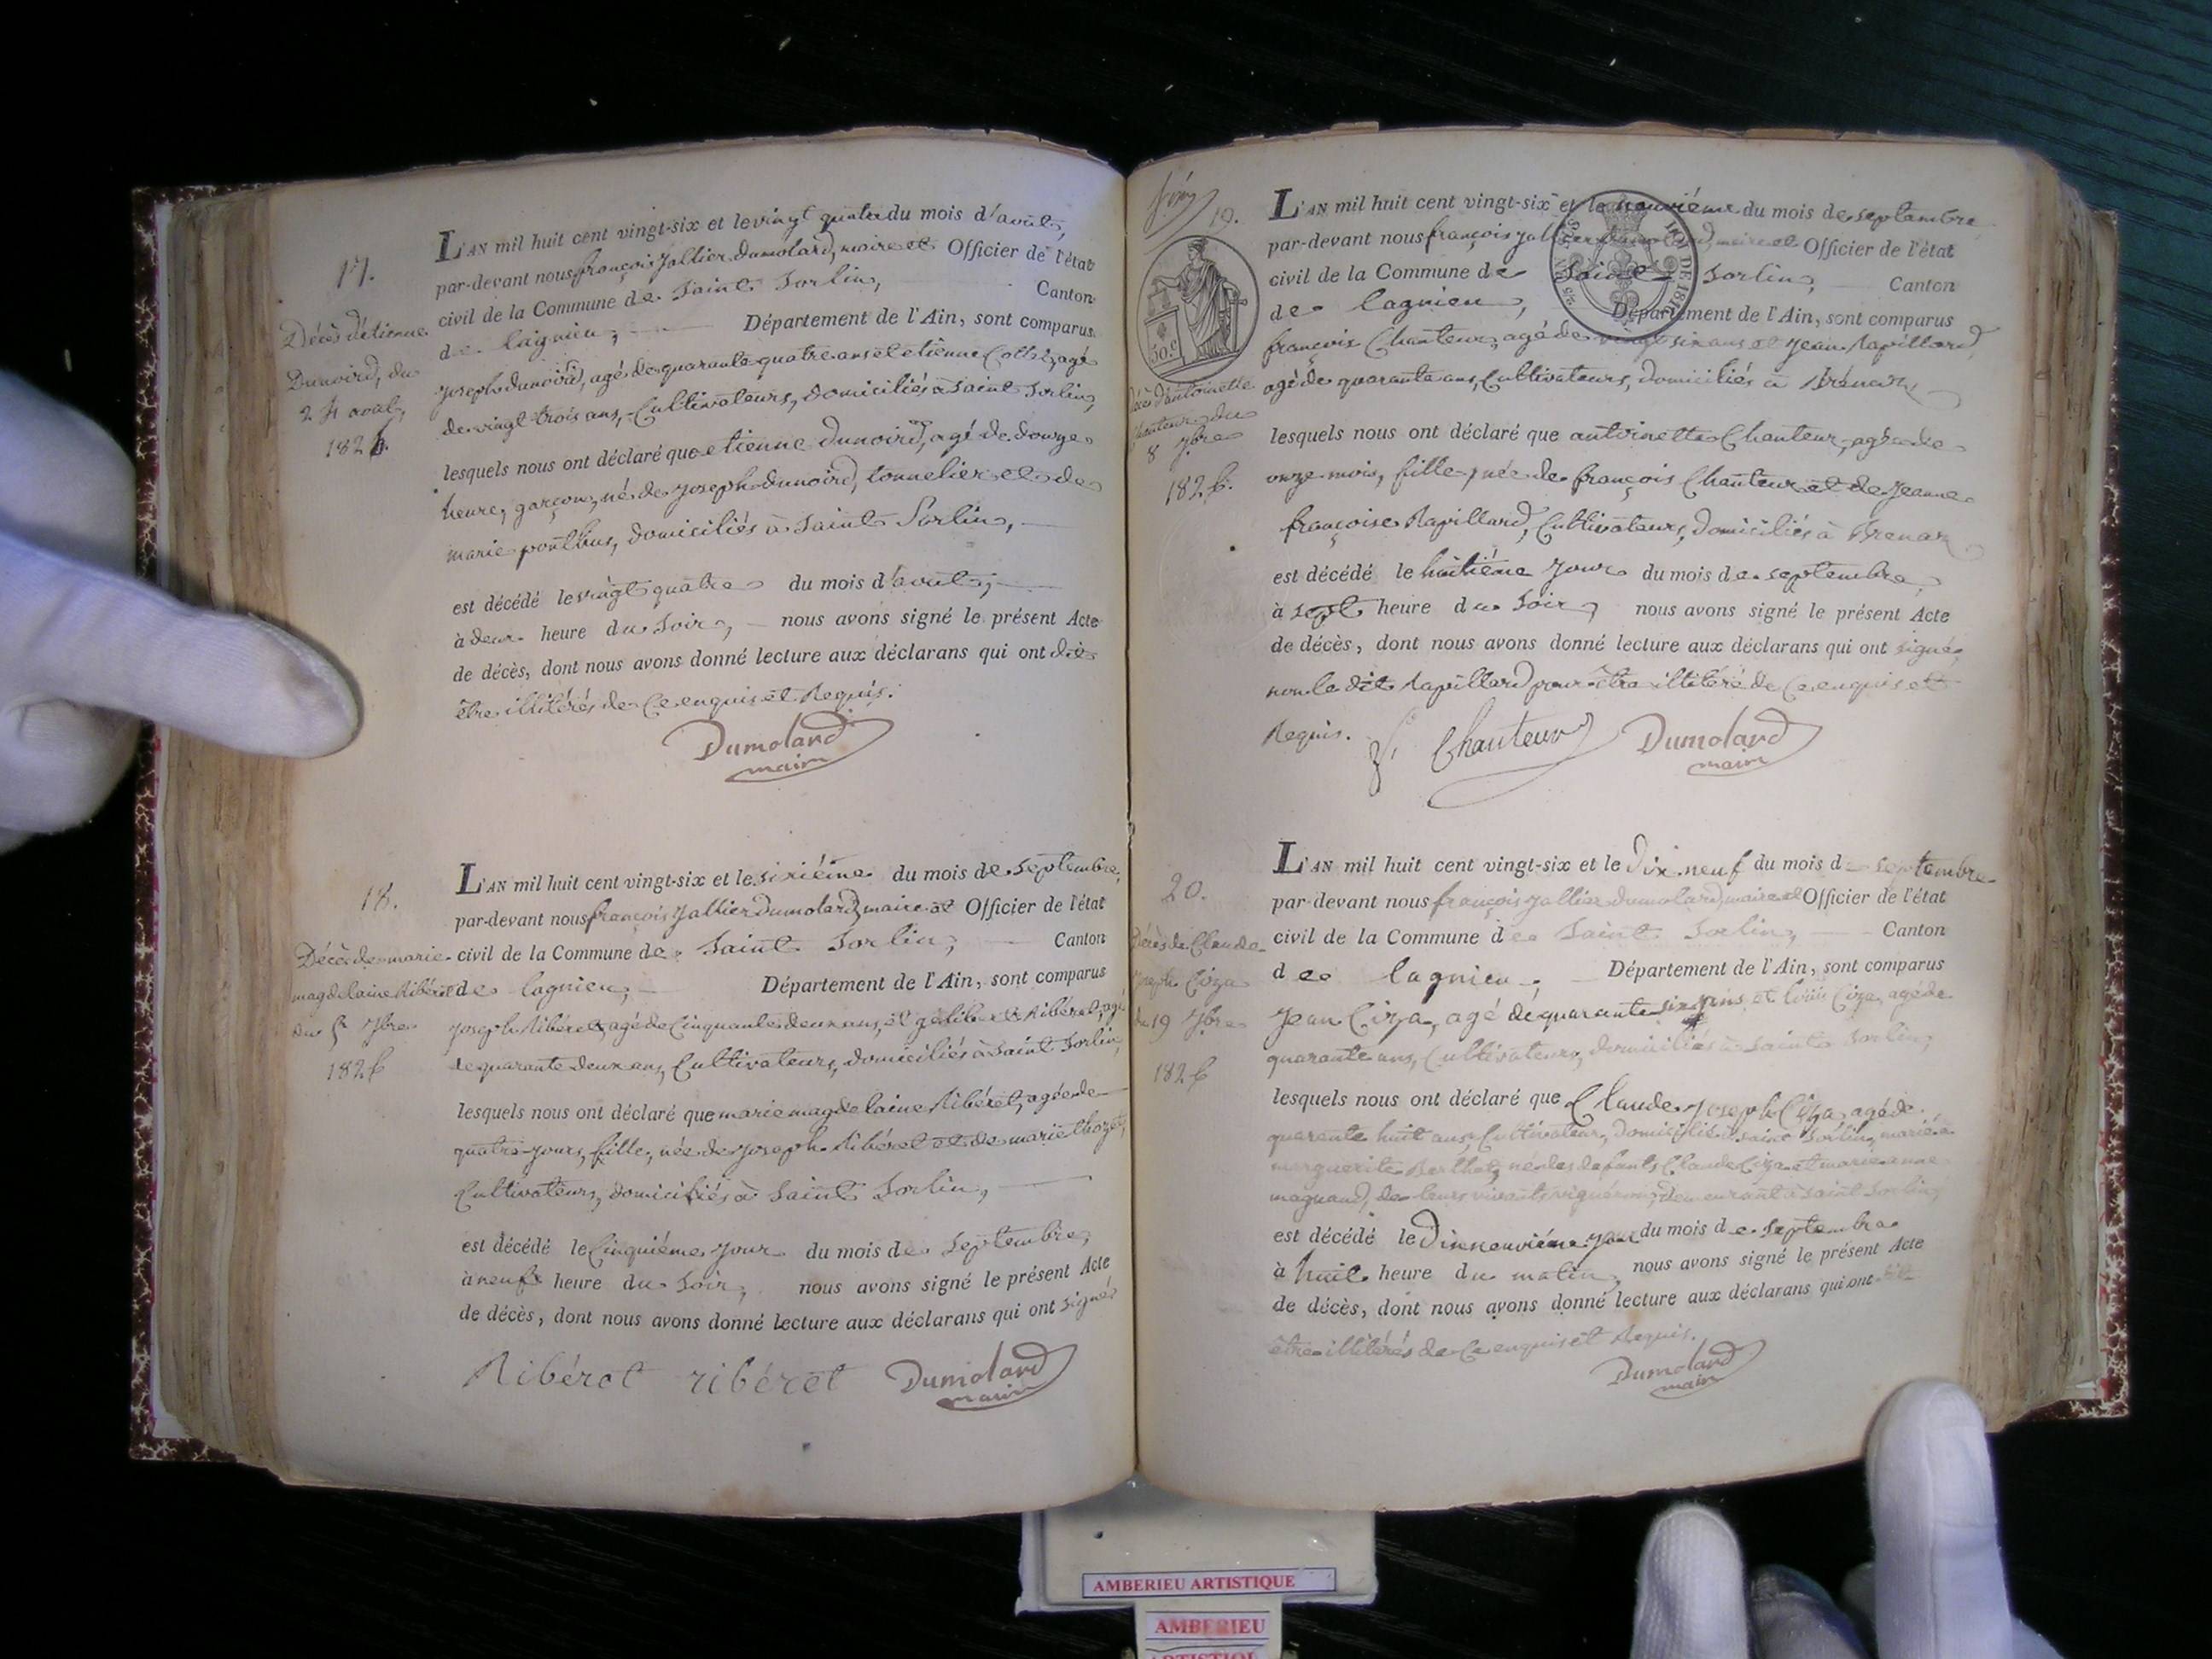 17.
Décès d'étienne
Dunoird, du
24 août,
1826.
L'AN mil huit cent vingt-six et le vingt quatre du mois d'août,
par-devant nous françois Jallier Dumolard, maire et Officier de l'état
civil de la Commune de Saint Sorlin, Canton
de lagnieu, Département de l'Ain, sont comparus
joseph dunoird, agé de quarante quatre ans et etienne agé
de vingt trois ans, Cultivateurs, domiciliés à Saint Sorlin,
lesquels nous ont déclaré que etienne dunoird, agé de douze
heure, garçon, né de joseph dunoird, tonnelier et de
marie ponthus, domiciliés à Saint Sorlin,
est décédé le vingt quatre du mois d'août,
à deux heure du Soir, nous avons signé le présent Acte
de décès, dont nous avons donné lecture aux déclarans qui ont dit
être illitérés de Ce enquis et Requis.
Dumolard
maire
18.
Décès de marie
magdelaine Ribéret
du 5 7bre
1826
L'AN mil huit cent vingt-six et le sixiéme du mois de septembre,
par-devant nous françois Jallier Dumolard, maire et Officier de l'état
civil de la Commune de Saint Sorlin, Canton
de lagnieu, Département de l'Ain, sont comparus
joseph Ribéret, agé de Cinquante deux ans, et Ribéret, agé
de quarante deux ans, Cultivateurs, domiciliés à Saint Sorlin,
lesquels nous ont déclaré que marie magdelaine Ribéret, agée de
quatre jours, fille, née de joseph Ribéret et de marie thozet,
Cultivateurs, domiciliés à Saint Sorlin,
est décédé le Cinquiéme jour du mois de septembre,
à neuf heure du Soir, nous avons signé le présent Acte
de décès, dont nous avons donné lecture aux déclarans qui ont signés
Ribéret ribéret Dumolard
maire
19.
30 c
Décès d'antoinette
Chanteur du
8 7bre
1826.
L'AN mil huit cent vingt-six et le neuviéme du mois de septembre
par-devant nous françois Jallier Dumolard, maire et Officier de l'état
civil de la Commune de Saint Sorlin, Canton
de lagnieu, Département de l'Ain, sont comparus
françois Chanteur, agé de vingt six ans et jean Rapillard,
agé de quarante ans, Cultivateurs, domiciliés à
lesquels nous ont déclaré que antoinette Chanteur, agée de
onze mois, fille, née de françois Chanteur et de jeanne
françoise Rapillard, Cultivateurs, domiciliés à
est décédé le huitiéme jour du mois de septembre,
à sept heure du Soir, nous avons signé le présent Acte
de décès, dont nous avons donné lecture aux déclarans qui ont signé,
non le dit Rapillard pour être illitéré de Ce enquis et
Requis.
f. Chanteur Dumolard
maire
20.
Décès de Claude
joseph Ciza
du 19 7bre
1826
L'AN mil huit cent vingt-six et le Dix neuf du mois de septembre
par-devant nous françois Jallier dumolard, maire et Officier de l'état
civil de la Commune de Saint Sorlin, Canton
de lagnieu, Département de l'Ain, sont comparus
jean Ciza, agé de quarante six ans et louis Ciza, agé de
quarante ans, Cultivateurs, domiciliés à Saint Sorlin,
lesquels nous ont déclaré que Claude joseph Ciza, agé de
quarante huit ans, Cultivateur, domicilié à saint Sorlin, marié à
marguerite Berthet, né des defunts Claude Ciza et marie anne
magnand, de leurs vivants vignérons, demeurant à saint Sorlin,
est décédé le Dixneuviéme jour du mois de septembre
à huit heure du matin, nous avons signé le présent Acte
de décès, dont nous avons donné lecture aux déclarans qui ont dit
être illitérés de Ce enquis et Requis.
Dumolard
maire
AMBERIEU ARTISTIQUE
AMBERIEU
ARTISTIQUE